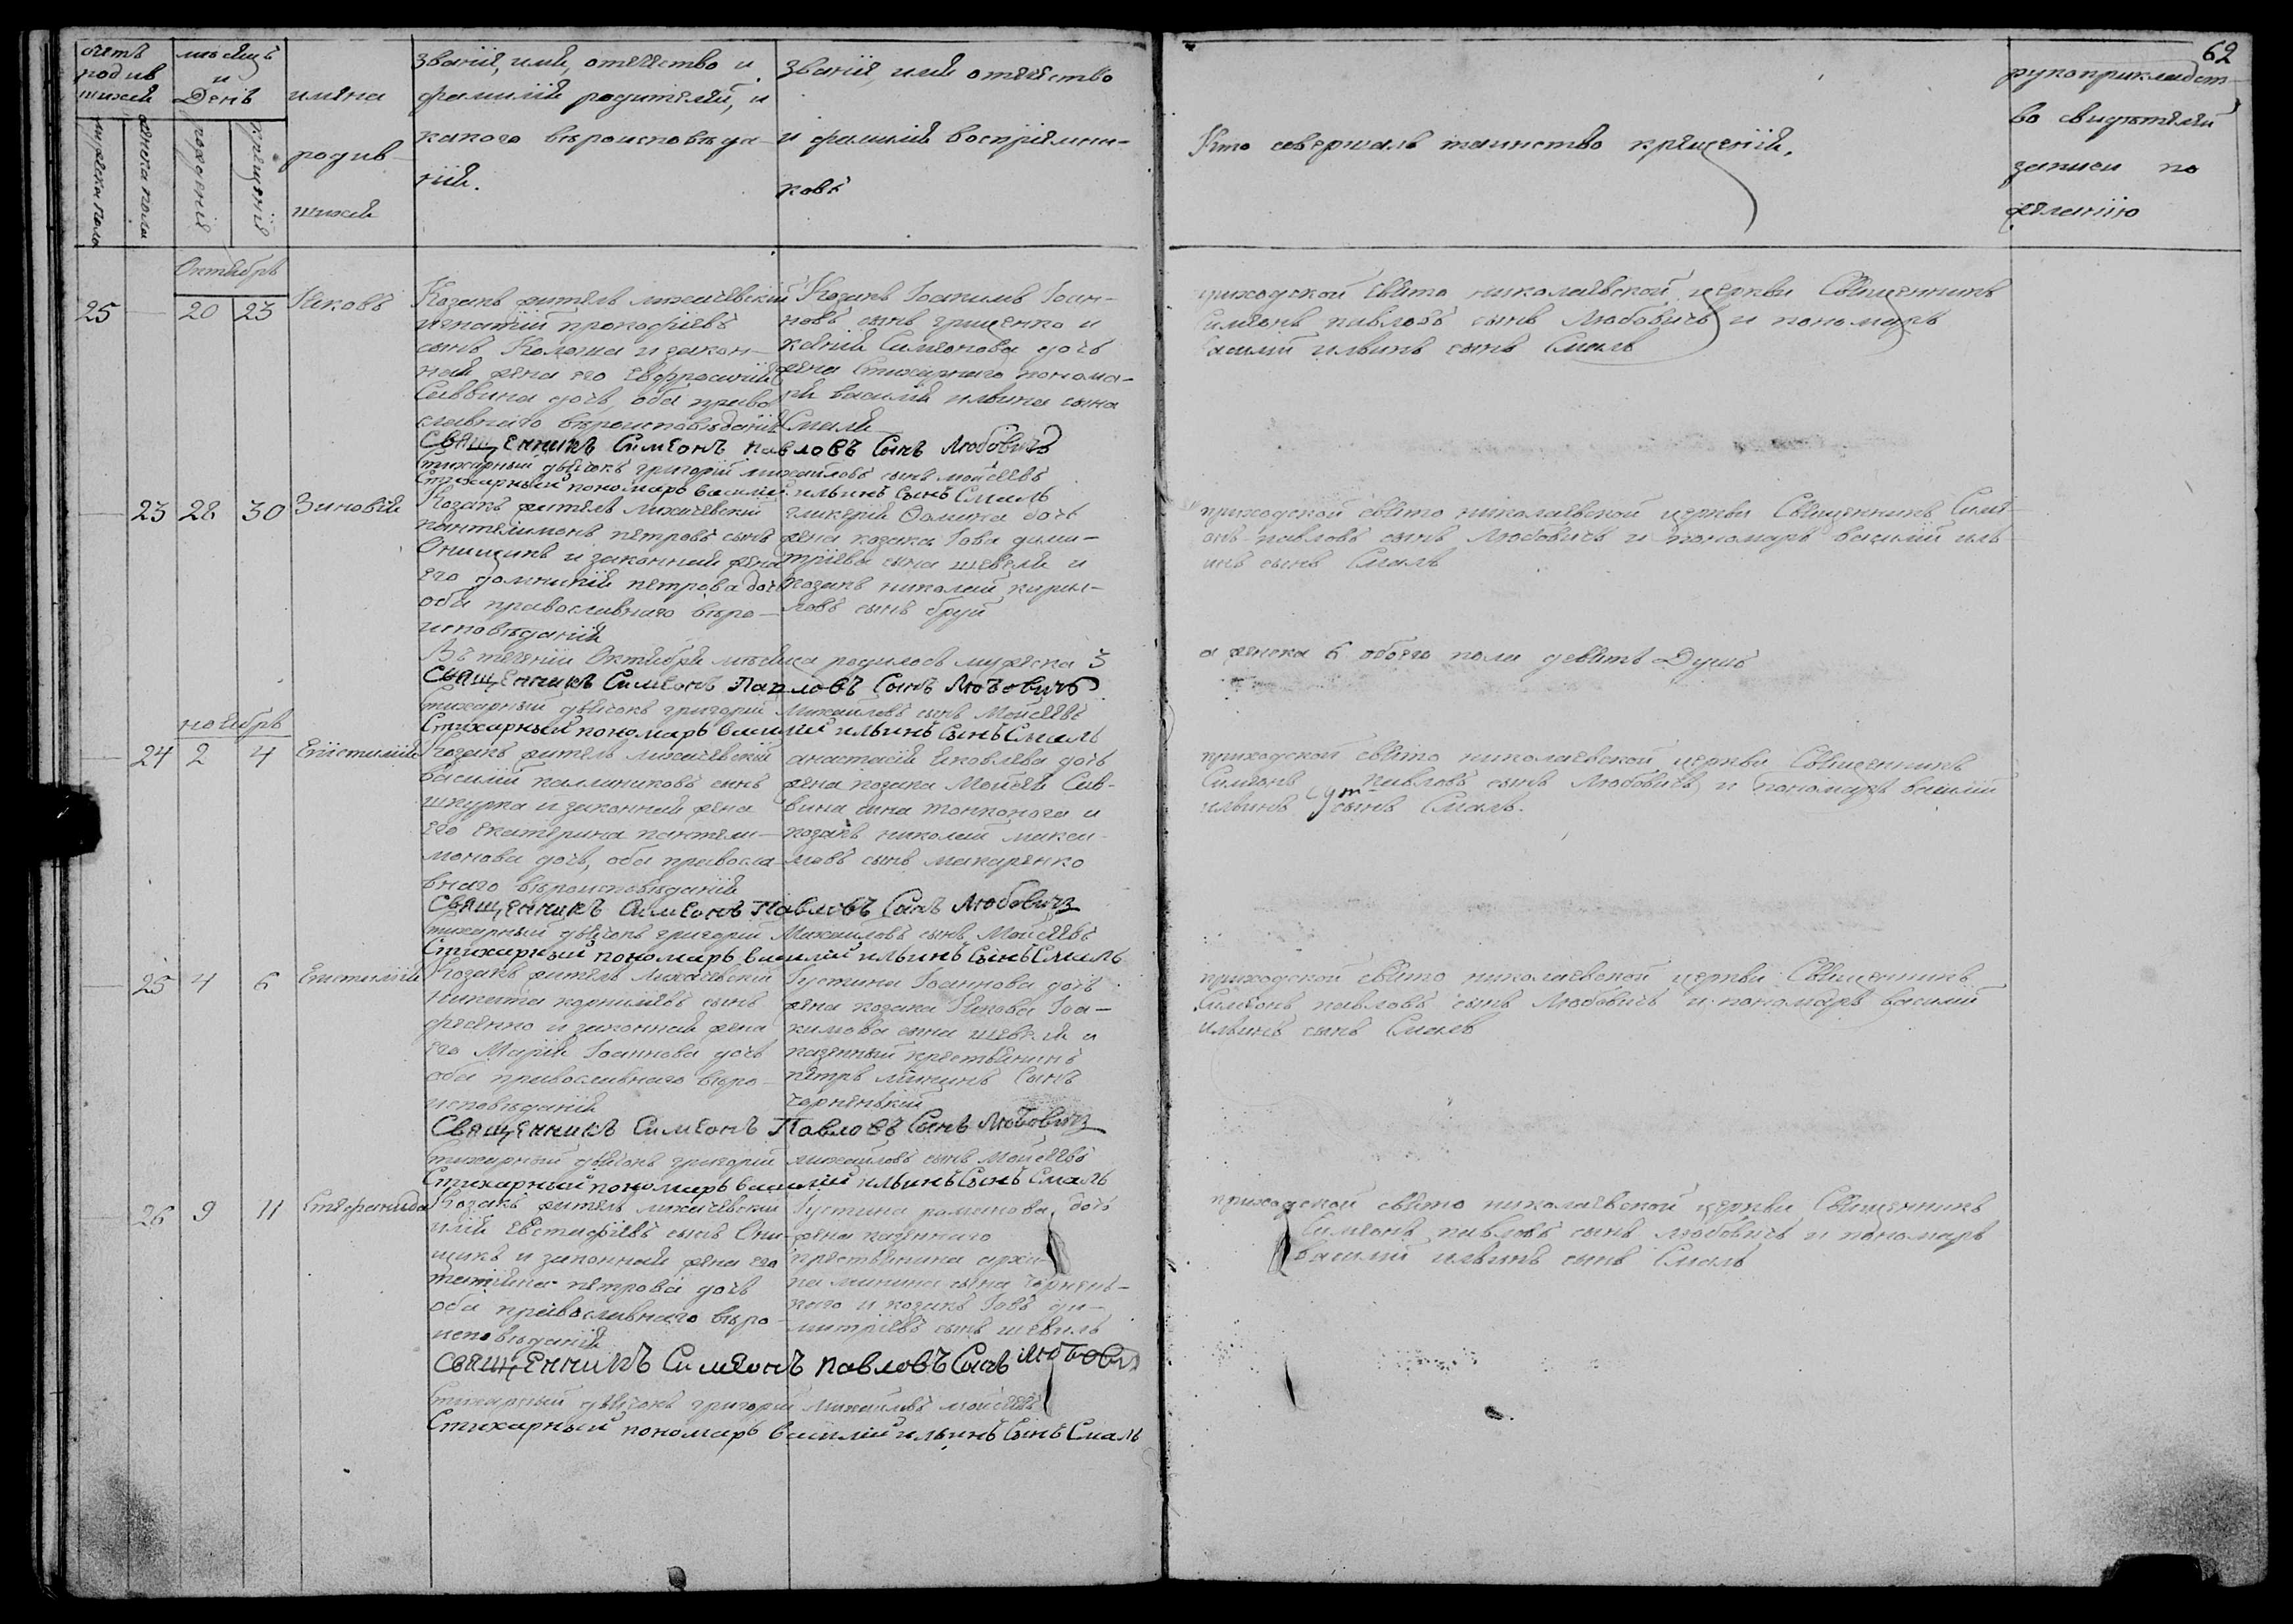 62
счетъ родившихся
мѣсяцъ и День
имяна родившихся
званіе, имя, отечество и фамилія родителей, и какого вѣроисповѣданія.
званіе, имя отечество и фамилія воспріемниковъ
Кто совершалъ таинство крещенія.
рукоприкладство свидѣтелей записи по желанію
мужеска пола
женска пола
рожденія
крещенія
Октябрь
25 20 23 Яковъ
Козакъ житель
игнатій прокофіевъ
сынъ Колоша и закон-
ная жена его Евфросинія
Саввина дочь, оба право
славнаго вѣроисповѣданія
Козакъ Іоакимъ Іоан-
новъ сынъ грищенко и
Симеонова дочь
жена Стихарнаго понома-
ря василія ильина сына
Смаля
приходской свято николаевской церкви Священникъ
Симеонъ павловъ сынъ Любовичъ и пономарь
василій ильинъ сынъ Смаль
Священникъ Симеонъ павловъ Сынъ Любовичъ
Стихарный дьячокъ григорій михайловъ сынъ мойсеевъ
Стихарный пономарь василій ильинъ Сынъ Смаль
23 28 30 Зиновія
Козакъ житель
пантелимонъ петровъ сынъ
Онищикъ и законная жена
его домникія петрова дочь
оба православнаго вѣро-
исповѣданія
гликерія Фомина дочь
жена козака Іова дими-
тріева сына шевеля и
козакъ николай кирил-
ловъ сынъ бруй
приходской свято николаевской церкви Священникъ Симе-
онъ павловъ сынъ Любовичъ и пономарь василій иль-
инъ сынъ Смаль
Въ теченіи Октября мѣсяца родилось мужеска 3
а женска 6 обоего пола девять Душъ
Священникъ Симеонъ Павловъ Сынъ Любовичъ
Стихарный дьячокъ григорій Михайловъ сынъ Мойсеевъ
Стихарный пономарь василій ильинъ Сынъ Смаль
ноябрь
24 2 4 Епистимія
Козакъ житель
василій каллиниковъ сынъ
шкурка и законная жена
его екатерина пантели-
монова дочь, оба правосла-
внаго вѣроисповѣданія
анастасія Яковлева дочь
жена козака Мойсея Сав-
вина сына тонконога и
козакъ николай макси-
мовъ сынъ макаренко
приходской свято николаевской церкви Священникъ
Симеонъ павловъ сынъ Любовичъ и пономарь василій
ильинъ сынъ Смаль.
Священникъ Симеонъ Павловъ Сынъ Любовичъ
Стихарный дьячокъ григорій Михайловъ сынъ Мойсеевъ
Стихарный пономарь василій ильинъ Сынъ Смаль
25 4 6 Епистимія
Козакъ житель
Никита корниліевъ сынъ
и законная жена
его Марія Іоаннова дочь
оба православнаго вѣро-
исповѣданія
Іустина Іоаннова дочь
жена козака Якова Іоа-
кимова сына шевеля и
казенный крестьянинъ
петръ мининъ Сынъ
чорненькій
приходской свято николаевской церкви Священникъ
Симеонъ павловъ сынъ Любовичъ и пономарь василій
ильинъ сынъ Смаль
Священникъ Симеонъ Павловъ Сынъ Любовичъ
Стихарный дьячокъ григорій михайловъ сынъ Мойсеевъ
Стихарный пономарь василій ильинъ Сынъ Смаль
26 9 11 Стефанида
Козакъ житель
илія Евстафіевъ сынъ Они-
щикъ и законная жена его
татіяна петрова дочь
оба православнаго вѣро-
исповѣданія
Іустина романова дочь
жена казеннаго
крестьянина
минина сына чорнень-
каго и козакъ Іовъ ди-
митріевъ сынъ шевель
приходской свято николаевской церкви Священникъ
Симеонъ павловъ сынъ любовичъ и пономарь
василій ильинъ сынъ Смаль
Священникъ Симеонъ павловъ Сынъ Любовичъ
Стихарный дьячокъ григорій Михайловъ мойсеевъ
Стихарный пономарь василій ильинъ Сынъ Смаль